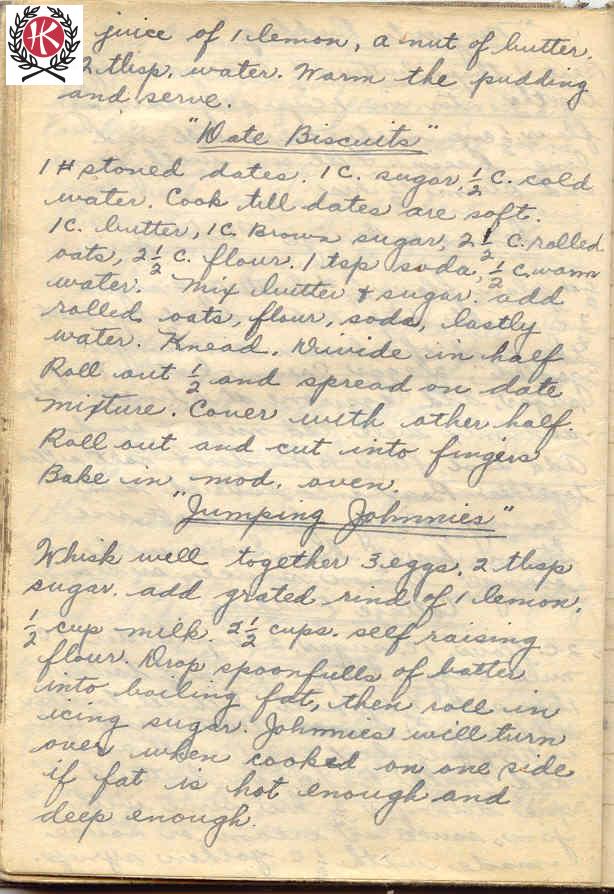 K
juice of 1 lemon, a nut of butter.
2 tbsp. water. Warm the pudding
and serve.
"Date Biscuits"
1 # stoned dates. 1 C. sugar, ½ C. cold
water. Cook till dates are soft.
1C. butter, 1C. Brown sugar, 2½ C. rolled
oats, 2½ C. flour. 1 tsp soda, ½ C. warm
water. Mix butter & sugar. add
rolled oats, flour, soda, lastly
water. Knead. Divide in half
Roll out ½ and spread on date
mixture. Cover with other half.
Roll out and cut into fingers
Bake in mod. oven.
"Jumping Johnnies"
Whisk well together 3 eggs. 2 tbsp
sugar. add grated rind of 1 lemon.
½ cup milk. 2½ cups. self raising
flour. Drop spoonfulls of batter
into boiling fat, then roll in
icing sugar. Johnnies will turn
over when cooked on one side
if fat is hot enough and
deep enough.